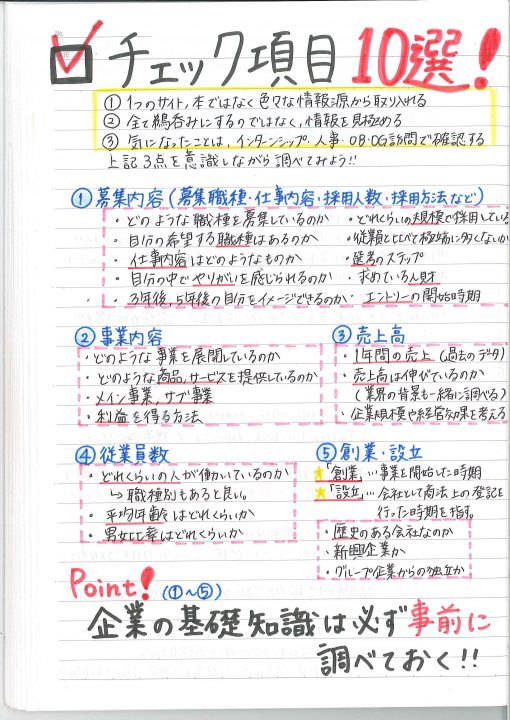 チェック項目10選!
① 1つのサイト,本ではなく色々な情報源から取り入れる
② 全て鵜呑みにするのではなく,情報を見極める
③ 気になったことは,インターンシップ・人事・OB・OG訪問で確認する
上記3点を意識しながら調べてみよう!!
①募集内容(募集職種・仕事内容・採用人数・採用方法など)
・どのような職種を募集しているのか
・自分の希望する職種はあるのか
・仕事内容はどのようなものか
・自分の中でやりがいを感じられるのか
・3年後,5年後の自分をイメージできるのか
・どれくらいの規模で採用している
・従業員と比べて極端に多くないか
・選考のステップ
・求めている人財
・エントリーの開始時期
②事業内容
・どのような事業を展開しているのか
・どのような商品,サービスを提供しているのか
・メイン事業,サブ事業
・利益を得る方法
③売上高
・1年間の売上(過去のデータ)
・売上高は伸びているのか
(業界の背景も一緒に調べる)
・企業規模や経営効果を考える
④従業員数
・どれくらいの人が働いているのか
↳職種別もあると良い。
・平均年齢はどれくらいか
・男女比率はどれくらいか
⑤創業・設立
★「創業」…事業を開始した時期
★「設立」…会社として商法上の登記を
行った時期を指す。
・歴史のある会社なのか
・新興企業か
・グループ企業からの独立か
Point!(①〜⑤)
企業の基礎知識は必ず事前に
調べておく!!